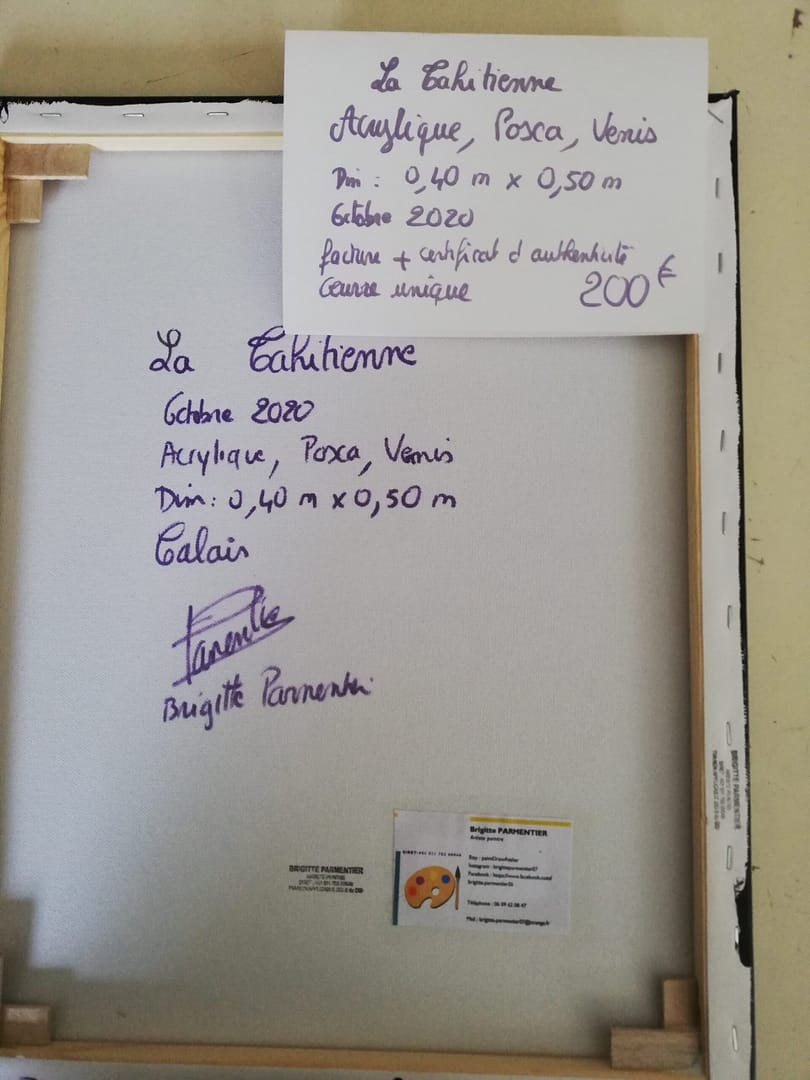 La Tahitienne
Acrylique, Posca, Vernis
Dim : 0,40 m x 0,50 m
Octobre 2020
facture + certificat d authenticité
Oeuvre unique 200 €
La Tahitienne
Octobre 2020
Acrylique, Posca, Vernis
Dim : 0,40 m x 0,50 m
Calais
Parmentier
Brigitte Parmentier
BRIGITTE PARMENTIER
Brigitte PARMENTIER
Artiste peintre
Instagram : brigitteparmentier07
Téléphone : 06 09 62 08 47
Mail : brigitte.parmentier07@orange.fr
BRIGITTE PARMENTIER